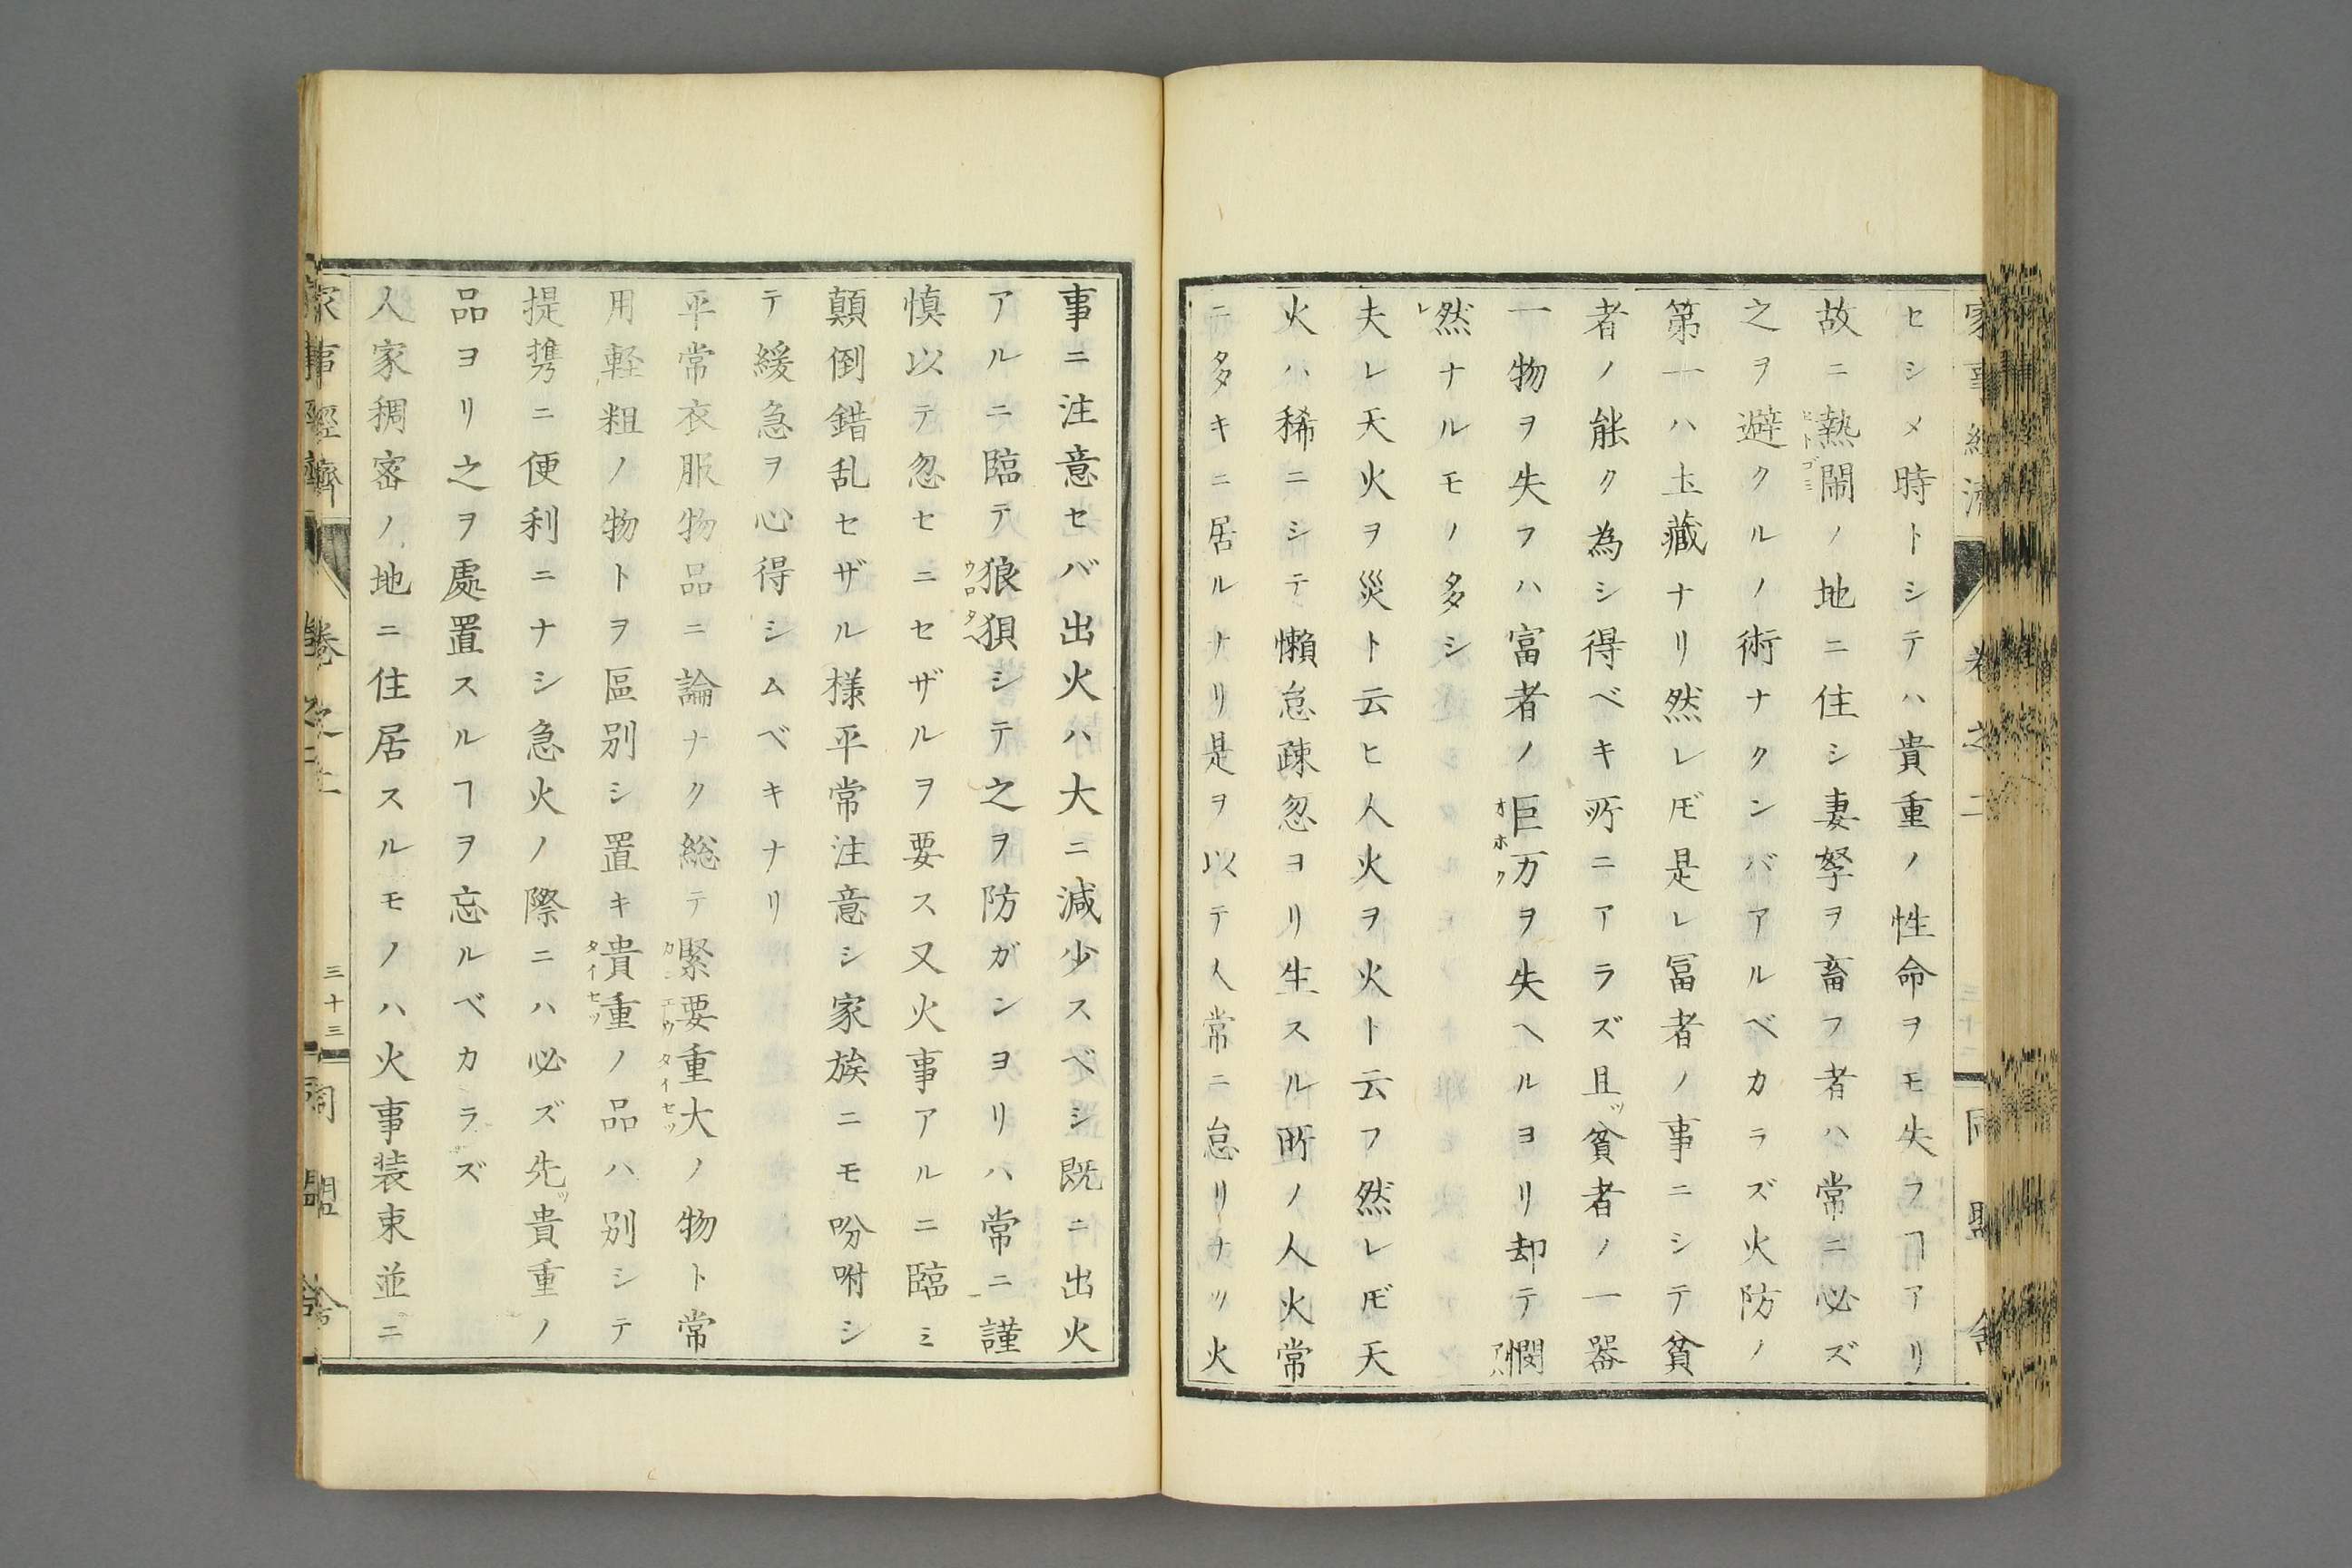 セシメ時トシテハ貴重ノ性命ヲモ失フヿアリ
故ニ熱閙ノ地ニ住シ妻孥ヲ畜フ者ハ常ニ必ズ
之ヲ避クルノ術ナクンバアルベカラズ火防ノ
第一ハ土藏ナリ然レ𪜈是レ冨者ノ事ニシテ貧
者ノ能ク為シ得ベキ所ニアラズ且ツ貧者ノ一器
一物ヲ失フハ富者ノ巨万ヲ失ヘルヨリ却テ憫
然ナルモノ多シ
夫レ天火ヲ災ト云ヒ人火ヲ火ト云フ然レ𪜈天
火ハ稀ニシテ懶怠疎忽ヨリ生スル所ノ人火常
ニ多キニ居ルナリ是ヲ以テ人常ニ怠リナク火
事ニ注意セバ出火ハ大ニ減少スベシ既ニ出火
アルニ臨テ狼狽シテ之ヲ防ガンヨリハ常ニ謹
慎以テ忽セニセザルヲ要ス又火事アルニ臨ミ
顛倒錯乱セザル様平常注意シ家族ニモ吩咐シ
テ緩急ヲ心得シムベキナリ
平常衣服物品ニ論ナク総テ緊要重大ノ物ト常
用軽粗ノ物トヲ區別シ置キ貴重ノ品ハ別シテ
提携ニ便利ニナシ急火ノ際ニハ必ズ先ツ貴重ノ
品ヨリ之ヲ處置スルヿヲ忘ルベカラズ
人家稠密ノ地ニ住居スルモノハ火事装束並ニ
家事經濟 卷之二 三十三 同盟舎